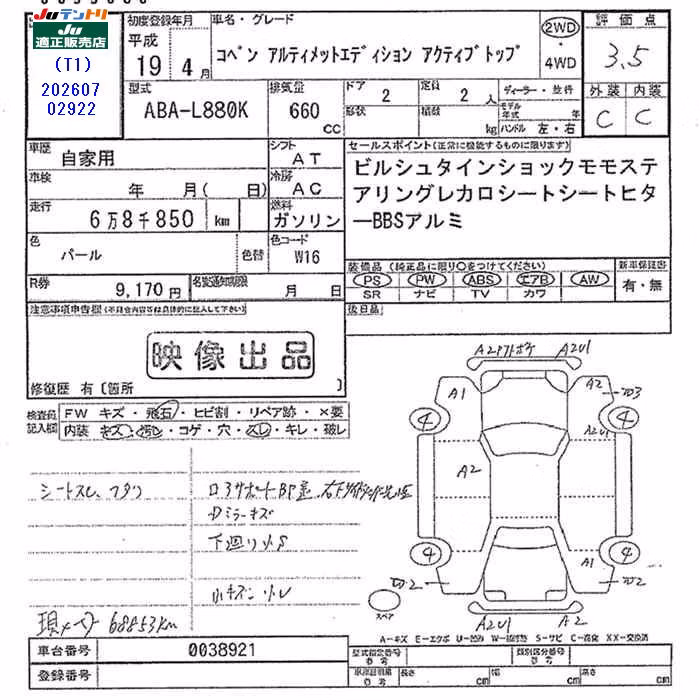 JUテントリ
JU適正販売店
(T1)
202607
02922
初度登録年月
平成
19年 4月
車名・グレード
コペン アルティメットエディション アクティブトップ
2WD
・
4WD
評価点
3.5
型式
ABA-L880K
排気量
660
cc
ドア
2
形状
定員
2人
積載
kg
ディーラー・並行
モデル年式 年
ハンドル 左・右
外装 内装
C C
車歴
自家用
シフト
AT
車検
年 月(日)
冷房
AC
走行
6万8千850 km
燃料
ガソリン
色
パール
色替
色コード
W16
R券
9,170円
名変通知期限
月 日
セールスポイント(正常に機能するものに限ります)
ビルシュタインショックモモステ
アリングレカロシートシートヒタ
ーBBSアルミ
装備品(純正品に限り○をつけてください)
PS PW ABS エアB AW
SR ナビ TV カワ
新車保証書
有・無
後日品
注意事項申告欄(不具合内容等は具体的に記入して下さい)
映像出品
修復歴 有〔箇所 〕
検査員
記入欄
FW キズ・飛石・ヒビ割・リペア跡・×要
内装 キズ・汚れ・コゲ・穴・スレ・キレ・破レ
シートスレ、
ロアサポート
ミラーキズ
下廻り小S
現メーター 68853km
A2 U1
A1
A2
4
4
A2
A2
4
4
A1
A2U1
A2
スペア
A-キズ E-エクボ U-凹み W-補修跡 S-サビ C-腐食 XX-交換済
車台番号
0038921
登録番号
型式指定番号
参考
類別区分番号
参考
車庫証明用
参考
長さ cm
幅 cm
高さ cm